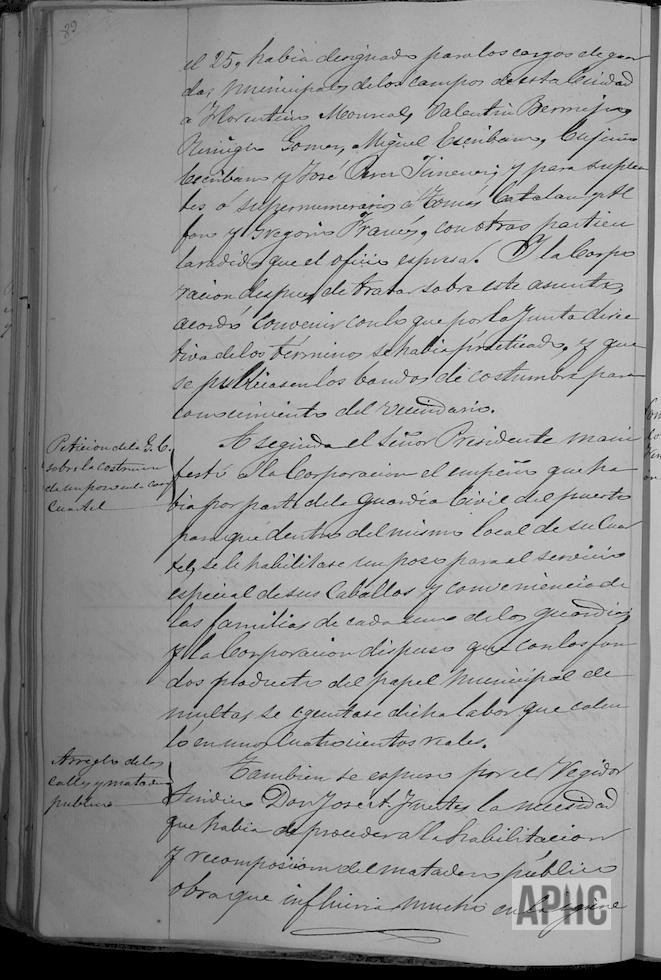 89
el 25, habia designado para los cargos de guar
das municipales de los campos de esta Ciudad
a Florentino Monreal, Valentin Bermejo,
Remigio Gomez, Miguel Escribano, Ceferino
Escribano y José Jimenez, y para suplen
tes ó supernumerarios a Tomás Catalan y Al
fons y Gregorio Francés, con otras particu
laridades que el oficio espresa. Y la Corpo
racion despues de tratar sobre este asunto,
acordó convenir con lo que por la Junta direc
tiva de los términos se habia practicado, y que
se publicasen los bandos de costumbre para
conocimiento del vecindario.
Peticion de la G. C.
sobre la costruccion
de un pozo en la Casa
Cuartel
A seguida el Señor Presidente mani
festó a la Corporacion el empeño que ha
bia por parte de la Guardia Civil del puesto
para que dentro del mismo local de su Cuar
tel, se le habilitase un poso para el servicio
especial de sus Caballos y conveniencia de
las familias de cada uno de los guardias
y la Corporacion dispuso que con los fon
dos producto del papel municipal de
multas, se egecutase dicha labor que calcu
ló en unos cuatrocientos reales.
Arreglo de las
calles y matadero
publico
Tambien se espuso por el Regidor
Sindico Don José A. Fuertes la necesidad
que habia de proceder a la habilitacion
y recomposicion del matadero público
obra que influiria mucho en la igiene
APHC